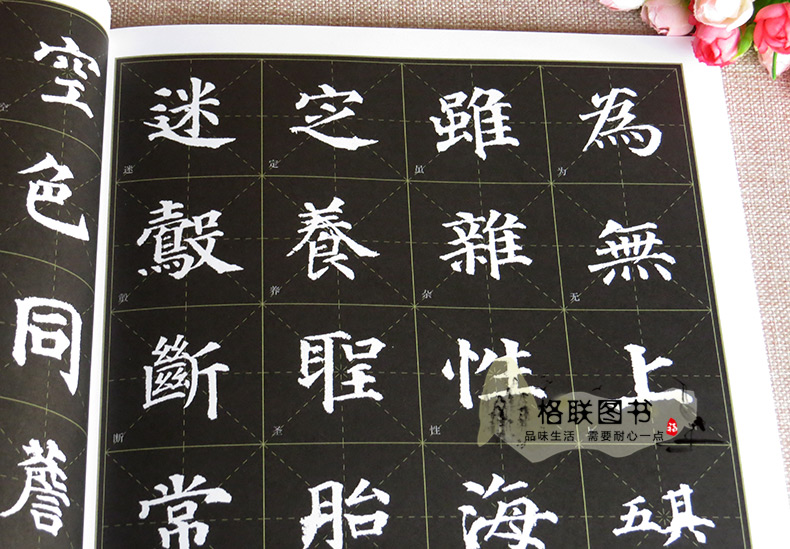 為無上
雖雜性海
定養聖胎
迷鷇斷常
空色同薝
为
无
虽
杂
性
定
养
圣
迷
断
空
格联图书
品味生活 需要耐心一点